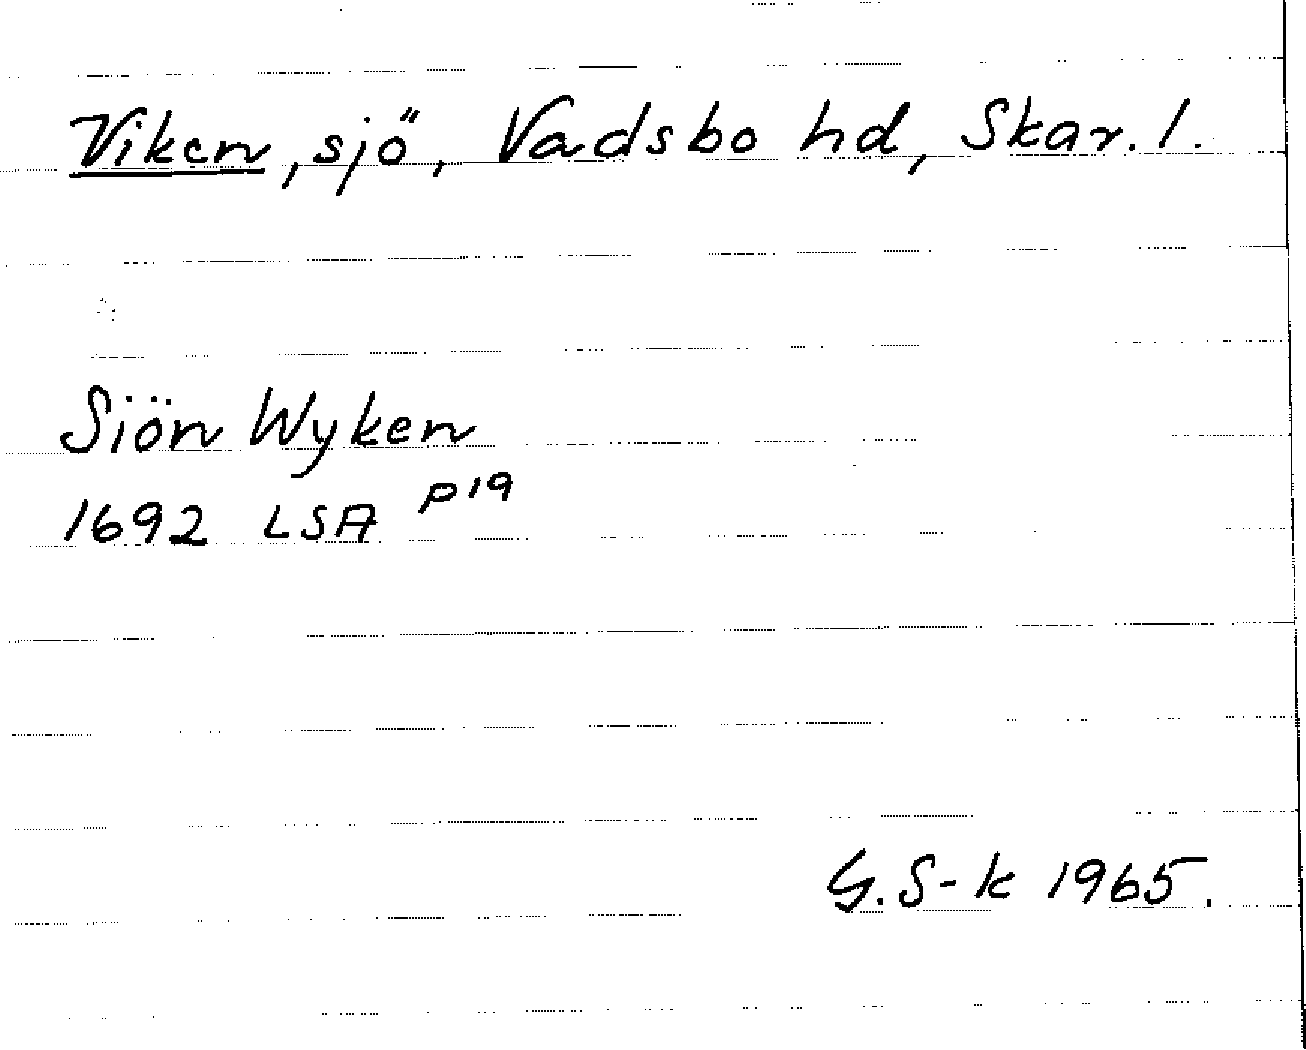 Viken, sjö, Vadsbo hd, Skar. l.
Siön Wyken
1692 LSA P19
G. S-k 1965.